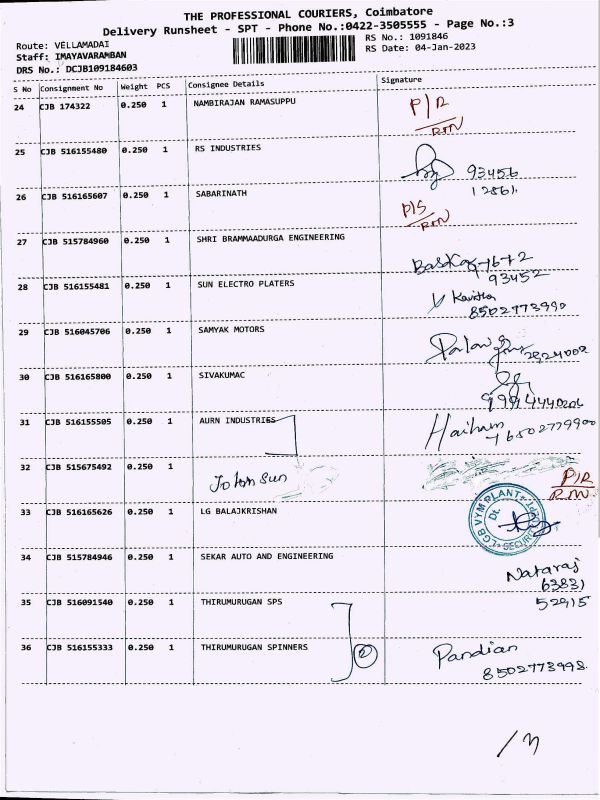 THE PROFESSIONAL COURIERS, Coimbatore
Delivery Runsheet - SPT - Phone No.:0422-3505555 - Page No.:3
Route: VELLAMADAI
RS No.: 1091846
Staff: IMAYAVARAMBAN
RS Date: 04-Jan-2023
DRS No.: DCJB109184603
S No Consignment No Weight PCS Consignee Details Signature
24 CJB 174322 0.250 1 NAMBIRAJAN RAMASUPPU P/R
RTN
25 CJB 516155480 0.250 1 RS INDUSTRIES 93456
12861
26 CJB 516165607 0.250 1 SABARINATH P/S
RTN
27 CJB 515784960 0.250 1 SHRI BRAMMAADURGA ENGINEERING
93452
28 CJB 516155481 0.250 1 SUN ELECTRO PLATERS Kavitha
8502773990
29 CJB 516045706 0.250 1 SAMYAK MOTORS
30 CJB 516165800 0.250 1 SIVAKUMAC
31 CJB 516155505 0.250 1 AURN INDUSTRIES
32 CJB 515675492 0.250 1 P/R
RTN
33 CJB 516165626 0.250 1 LG BALAJKRISHAN LGB VYM PLANT
34 CJB 515784946 0.250 1 SEKAR AUTO AND ENGINEERING Nataraj
63831
35 CJB 516091540 0.250 1 THIRUMURUGAN SPS 52915
36 CJB 516155333 0.250 1 THIRUMURUGAN SPINNERS Pandian
8502773998